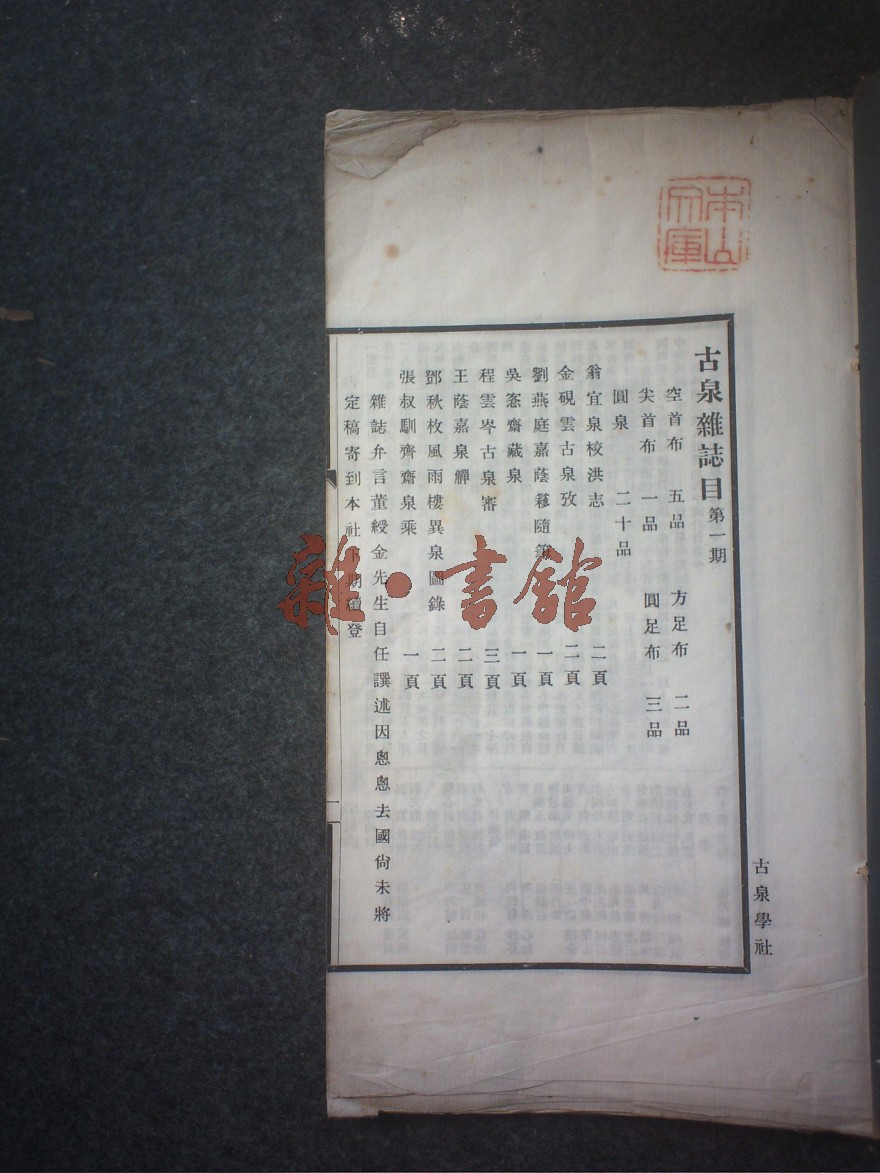 古泉雜誌目 第一期
空首布 五品 方足布 二品
尖首布 一品 圓足布 三品
圓泉 二十品
翁宜泉校洪志 二頁
金硯雲古泉攷 二頁
劉燕庭嘉蔭簃隨筆 一頁
吳愙齋藏泉 一頁
程雲岑古泉審 三頁
王蔭嘉泉觶 二頁
鄧秋枚風雨樓異泉圖錄 二頁
張叔馴齊齋泉乘 一頁
雜誌弁言董綬金先生自任譔述因悤悤去國尙未將
定稿寄到本社下期續登
古泉學社
雜·書館